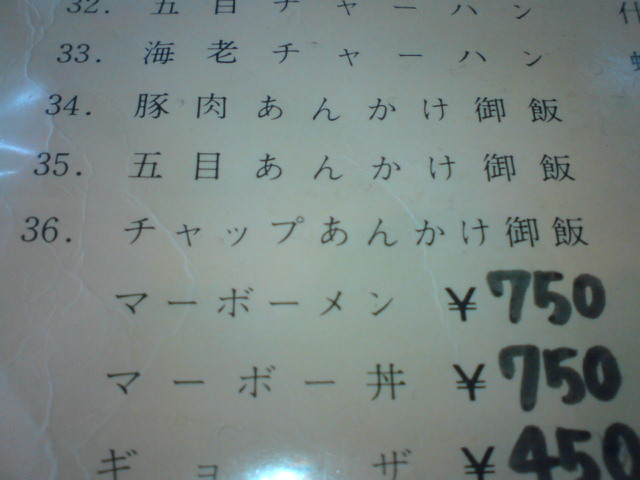 32. 五目チャーハン 什
33. 海老チャーハン
34. 豚肉あんかけ御飯
35. 五目あんかけ御飯
36. チャップあんかけ御飯
マーボーメン ¥750
マーボー丼 ¥750
ギョーザ ¥450